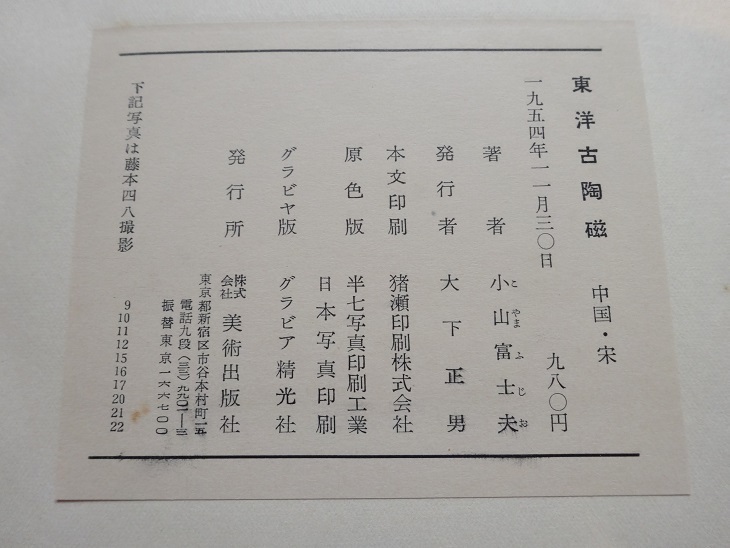 東洋古陶磁　中国・宋
一九五四年一一月三〇日　九八〇円
著者　小山富士夫
こやまふじお
発行者　大下正男
本文印刷　猪瀬印刷株式会社
原色版　半七写真印刷工業
日本写真印刷
グラビヤ版　グラビア精光社
発行所　株式会社　美術出版社
東京都新宿区市谷本村町一五
電話九段(三三)九九〇一—三
振替東京一六六七〇〇
下記写真は藤本四八撮影
9 10 11 12 15 16 17 20 21 22